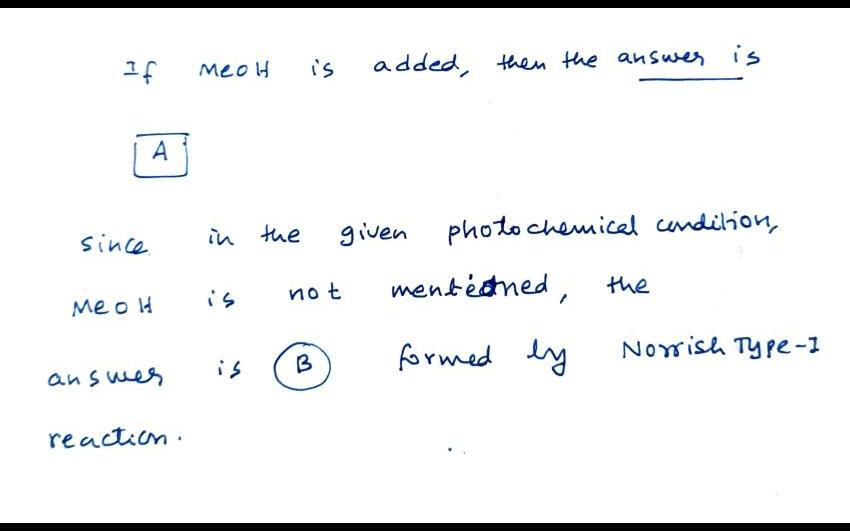 If MeOH is added, then the answer is
A
since in the given photochemical condition,
MeOH is not mentioned, the
answer is B formed by Norrish Type-I
reaction.